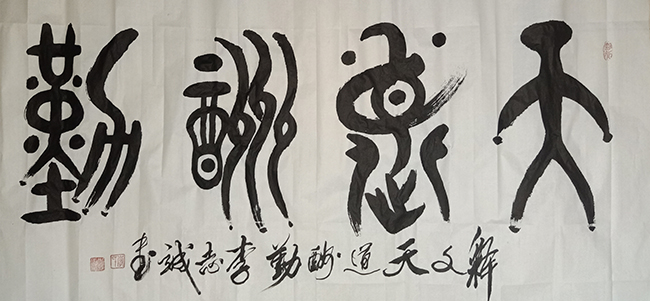 天道酬勤
釋文天道酬勤李志誠書